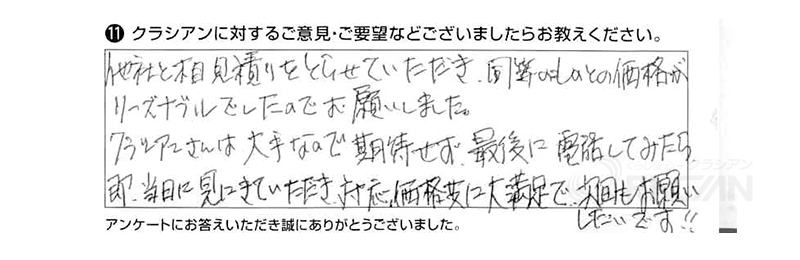 ⑪ クラシアンに対するご意見・ご要望などございましたらお教えください。
他社と相見積りをとらせていただき、同等のものとの価格が
リーズナブルでしたのでお願いしました。
クラシアンさんは大手なので期待せず、最後に電話してみたら
即、当日に見にきていただき、対応、価格共に大満足で、次回もお願い
したいです!!
アンケートにお答えいただき誠にありがとうございました。
クラシアン